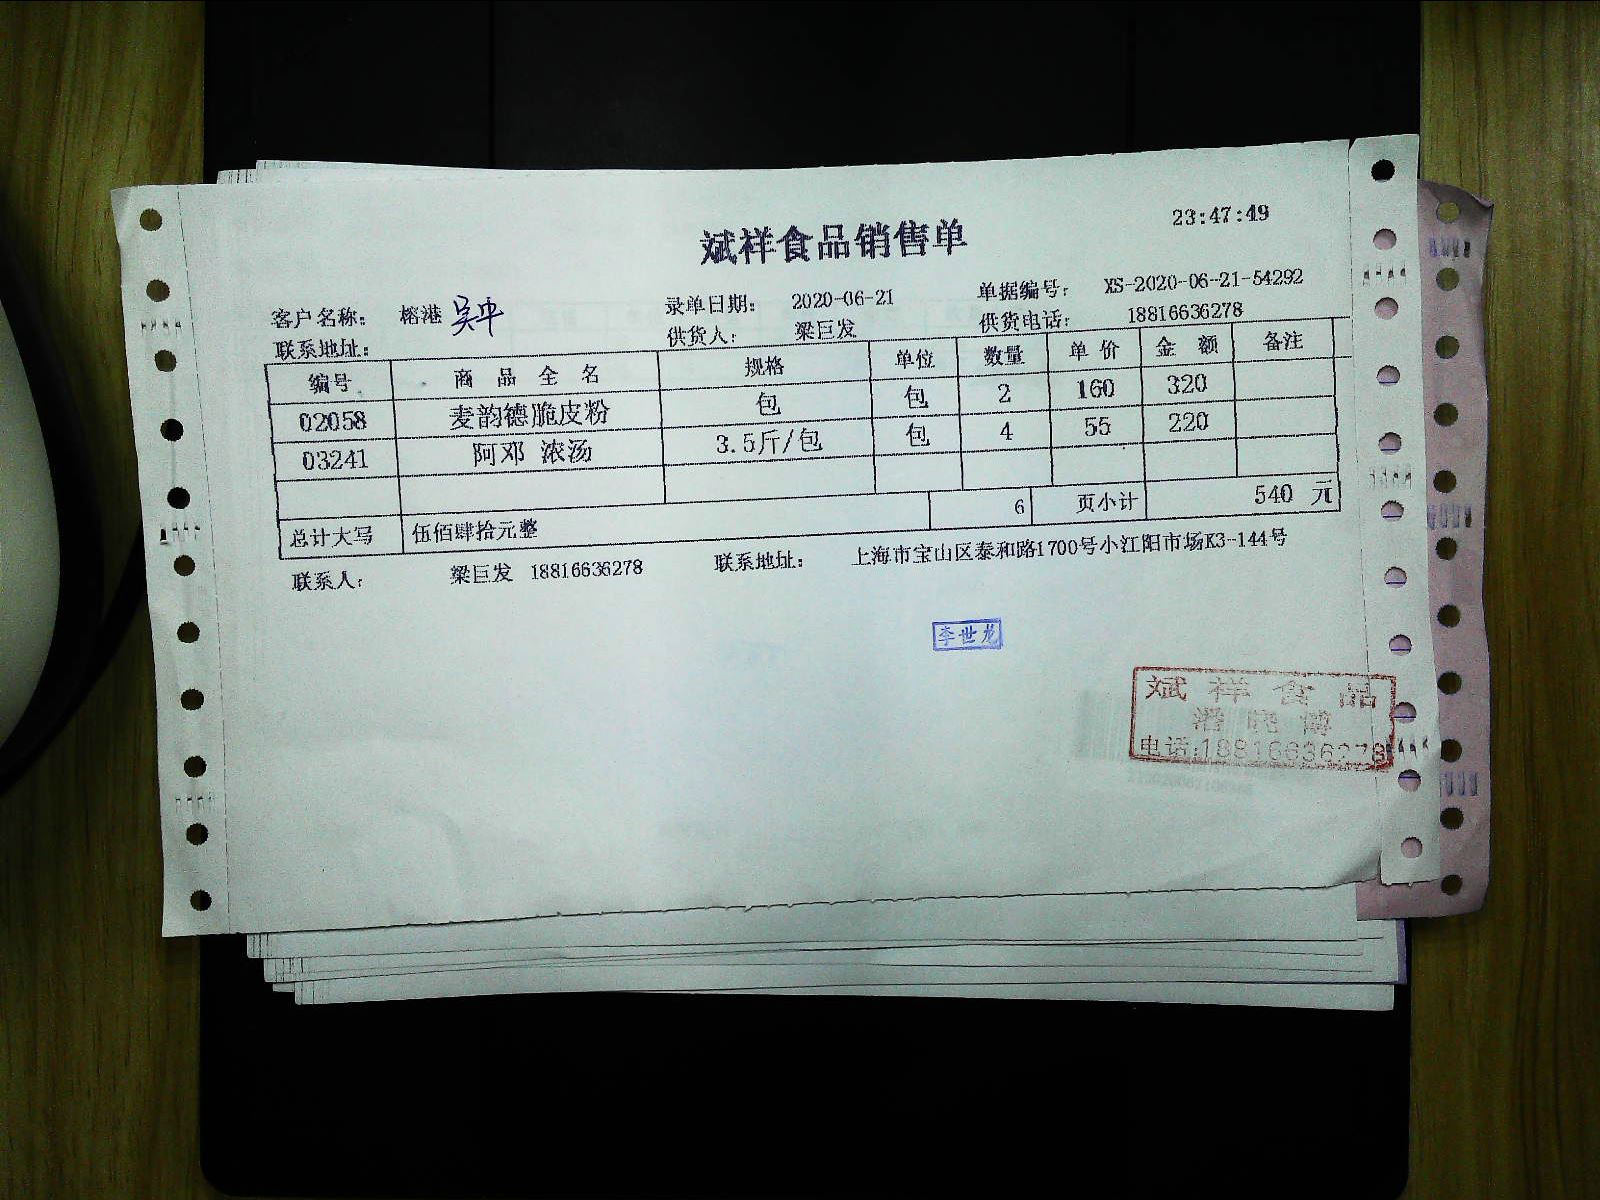 23:47:49
斌祥食品销售单
客户名称： 榕港 吴中 录单日期： 2020-06-21 单据编号： XS-2020-06-21-54292
联系地址： 供货人： 梁巨发 供货电话： 18816636278
编号 商品全名 规格 单位 数量 单价 金额 备注
02058 麦韵德脆皮粉 包 包 2 160 320
03241 阿邓 浓汤 3.5斤/包 包 4 55 220
总计大写 伍佰肆拾元整 6 页小计 540 元
联系人： 梁巨发 18816636278 联系地址： 上海市宝山区泰和路1700号小江阳市场K3-144号
李世龙
斌祥食品
电话:18816636278